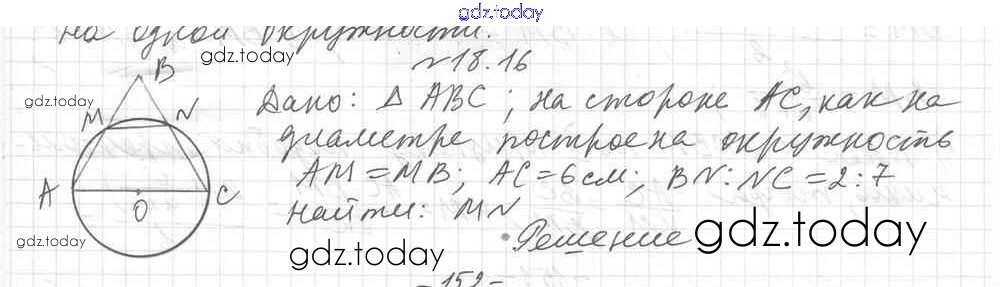 gdz.today
на одной окружности.
gdz.today
№18.16
B
gdz.today
M N
Дано: Δ ABC; на стороне AC, как на
диаметре построена окружность
AM = MB; AC = 6 см; BN : NC = 2 : 7
A C
O
Найти: MN
gdz.today
Решение
gdz.today
gdz.today
- 152 -